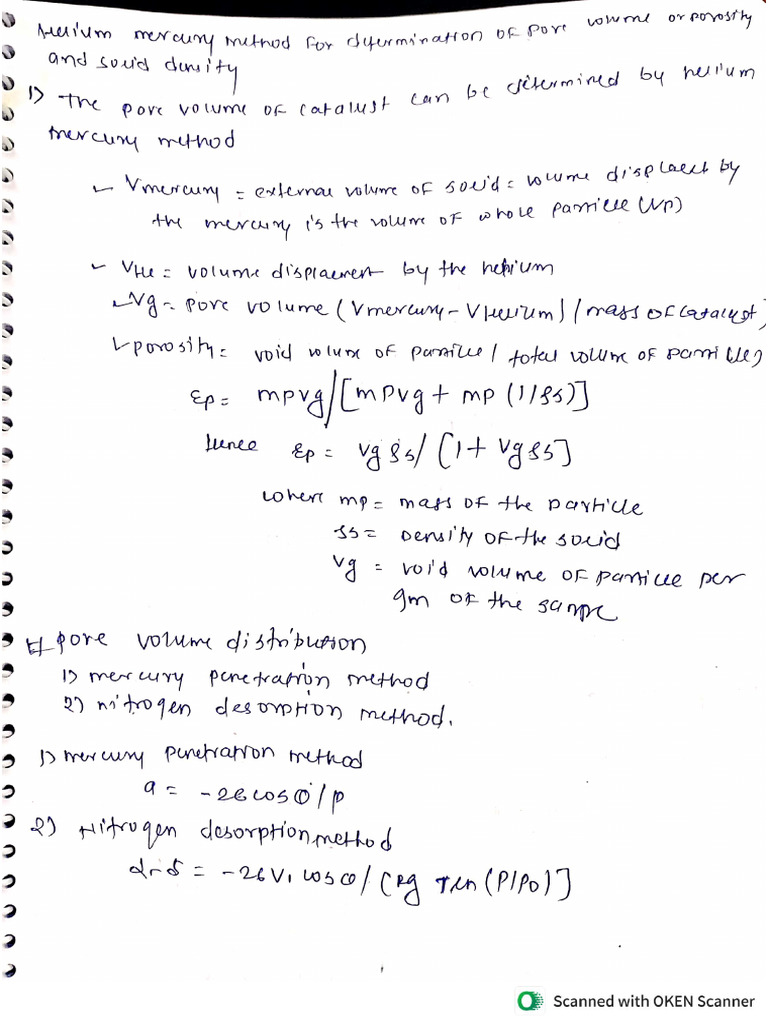 Helium mercury method for determination of pore volume or porosity
and solid density
1) The pore volume of catalyst can be determined by helium
mercury method
Vmercury = external volume of solid = volume displaced by
the mercury is the volume of whole particle (Vp)
VHe = volume displacement by the helium
Vg = pore volume (Vmercury - VHelium) / mass of catalyst)
porosity = void volume of particle / total volume of particle)
εp = mpvg/[mpvg + mp (1/ρs)]
hence εp = vg ρs/ [1 + Vg ρs]
where mp = mass of the particle
ρs = density of the solid
Vg = void volume of particle per
gm of the sample
pore volume distribution
1) mercury penetration method
2) nitrogen desorption method.
1) mercury penetration method
a = -2σ cos θ / p
2) Nitrogen desorption method
a-δ = -2σ V1 cos θ / [Rg T ln (P/Po)]
Scanned with OKEN Scanner